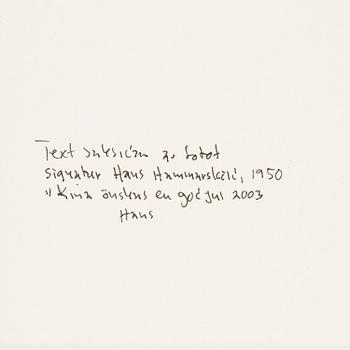 Text på baksidan av fotot
signatur Hans Hammarskiöld, 1950
"Kina önskas en god jul 2003
Hans